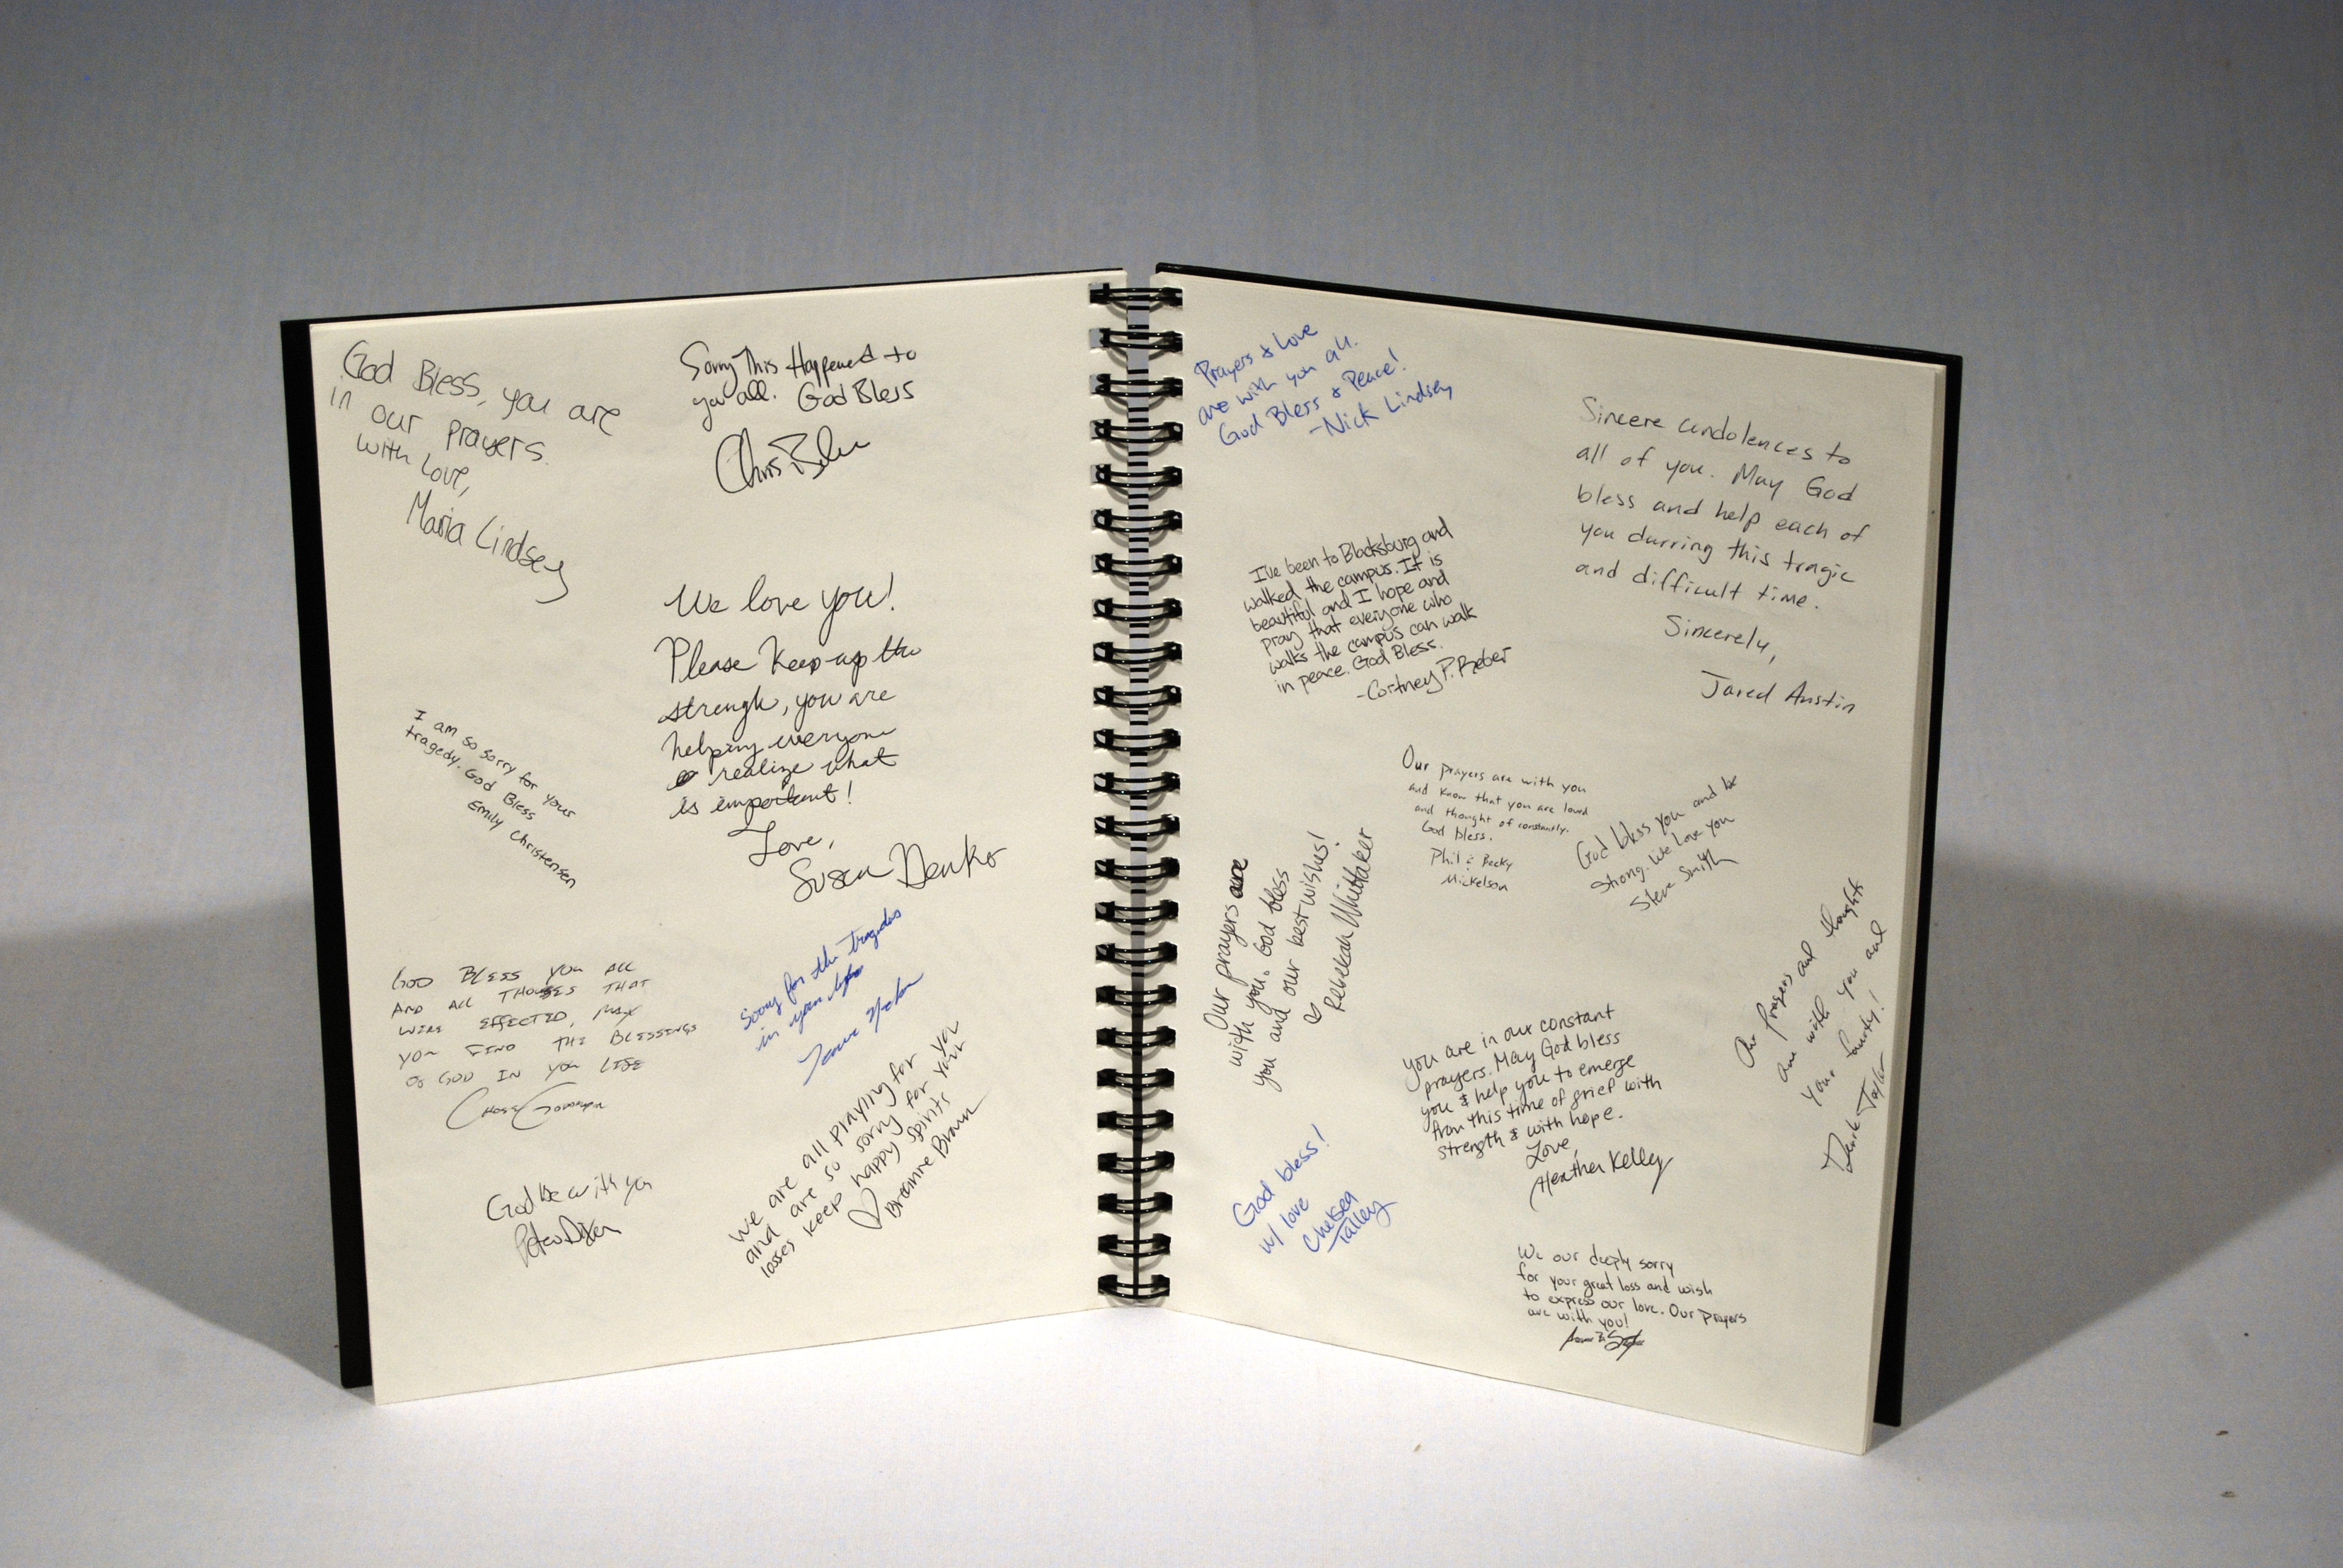 God Bless, you are
in our prayers.
with love,
Maria Lindsey
Sorry This Happened to
you all. God Bless
Chris
We love you!
Please Keep up the
strength, you are
helping everyone
realize what
is important!
Love,
Susan
I am so sorry for your
tragedy. God Bless
Emily Christensen
GOD BLESS YOU ALL
AND ALL THOUSES THAT
WERE EFFECTED, MAY
YOU FIND THE BLESSINGS
OF GOD IN YOU LIFE
Sorry for the tragedies
in your
God be with you
We are all praying for you
and are so sorry for your
losses keep happy spirits
Breanne Braun
Prayers & Love
are with you all.
God Bless & Peace!
-Nick Lindsey
I've been to Blacksburg and
walked the campus. It is
beautiful and I hope and
pray that everyone who
walks the campus can walk
in peace. God Bless.
-Cortney P. Reber
Sincere condolences to
all of you. May God
bless and help each of
you durring this tragic
and difficult time.
Sincerely,
Jared Austin
Our prayers are with you
and know that you are loved
and thought of constantly.
God bless.
Phil & Becky
Mickelson
God bless you and be
Strong. We Love you
Steve Smith
Our prayers are
with you. God bless
you and our best wishes!
Rebekah Whittaker
Our prayers and thoughts
are with you and
your family!
Derek Taylor
you are in our constant
prayers. May God bless
you & help you to emerge
from this time of grief with
strength & with hope.
Love,
Heather Kelly
God bless!
w/ love
Chelsea
Talley
We our deeply sorry
for your great loss and wish
to express our love. Our prayers
are with you!